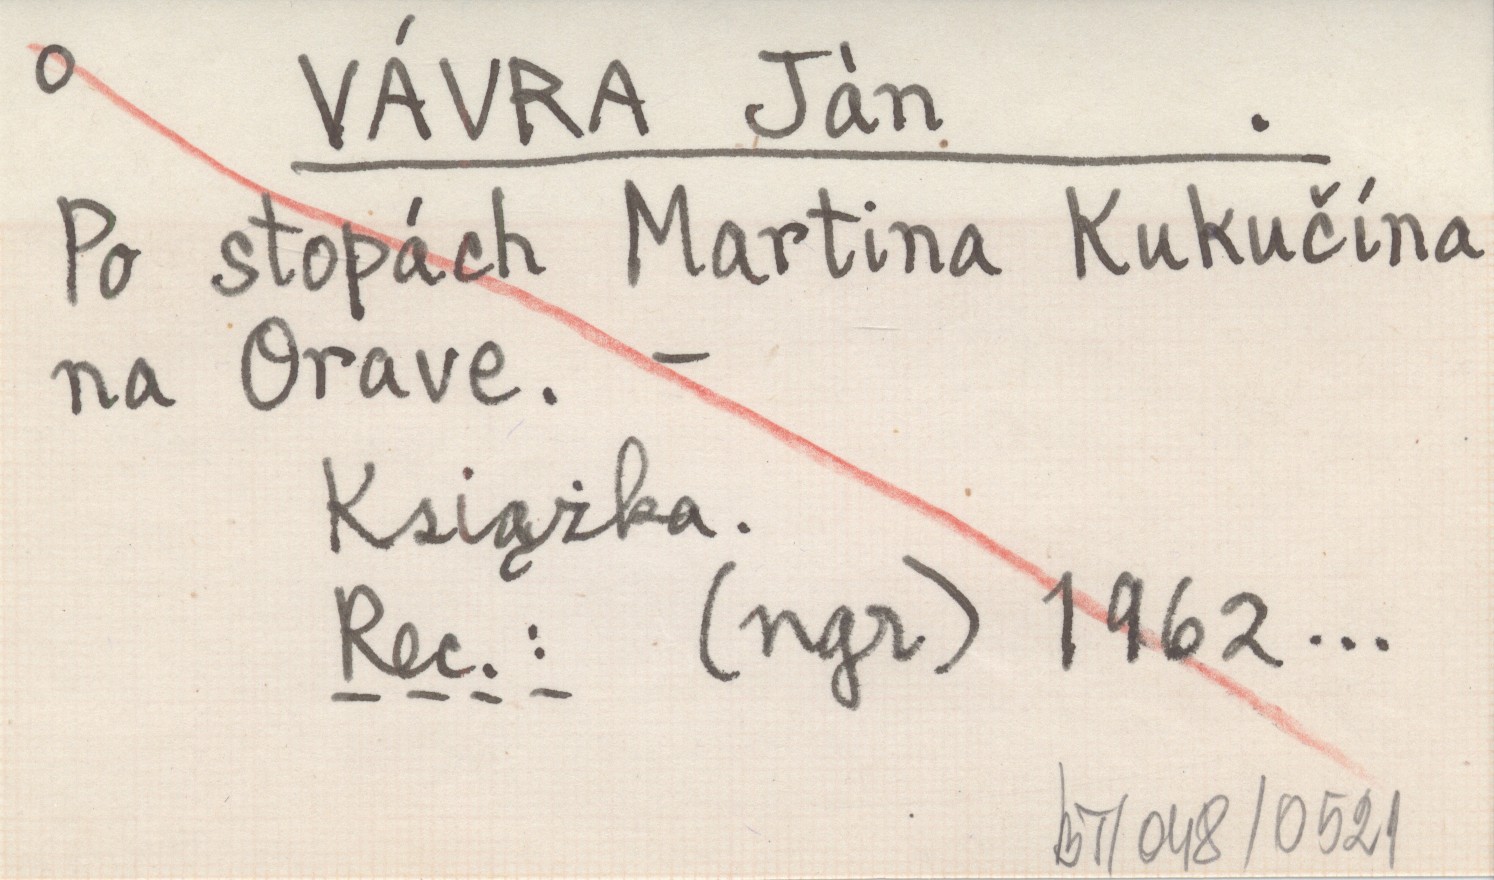 o VÁVRA Ján .
Po stopách Martina Kukučína
na Orave. –
Książka.
Rec.: (ngr) 1962...
BT/048/0521